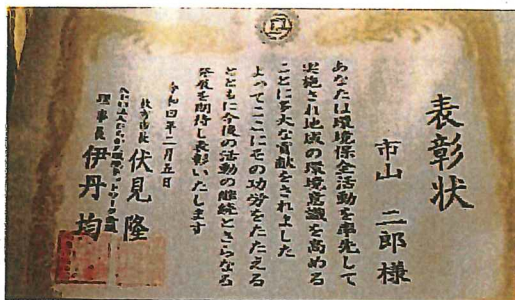 表彰状
市山 二郎 様
あなたは環境保全活動を率先して
実施され地域の環境意識を高める
ことに多大な貢献をされました
よってここにその功労をたたえる
とともに今後の活動の継続とさらなる
発展を期待し表彰いたします
令和四年二月五日
枚方市長 伏見 隆
理事長 伊丹 均